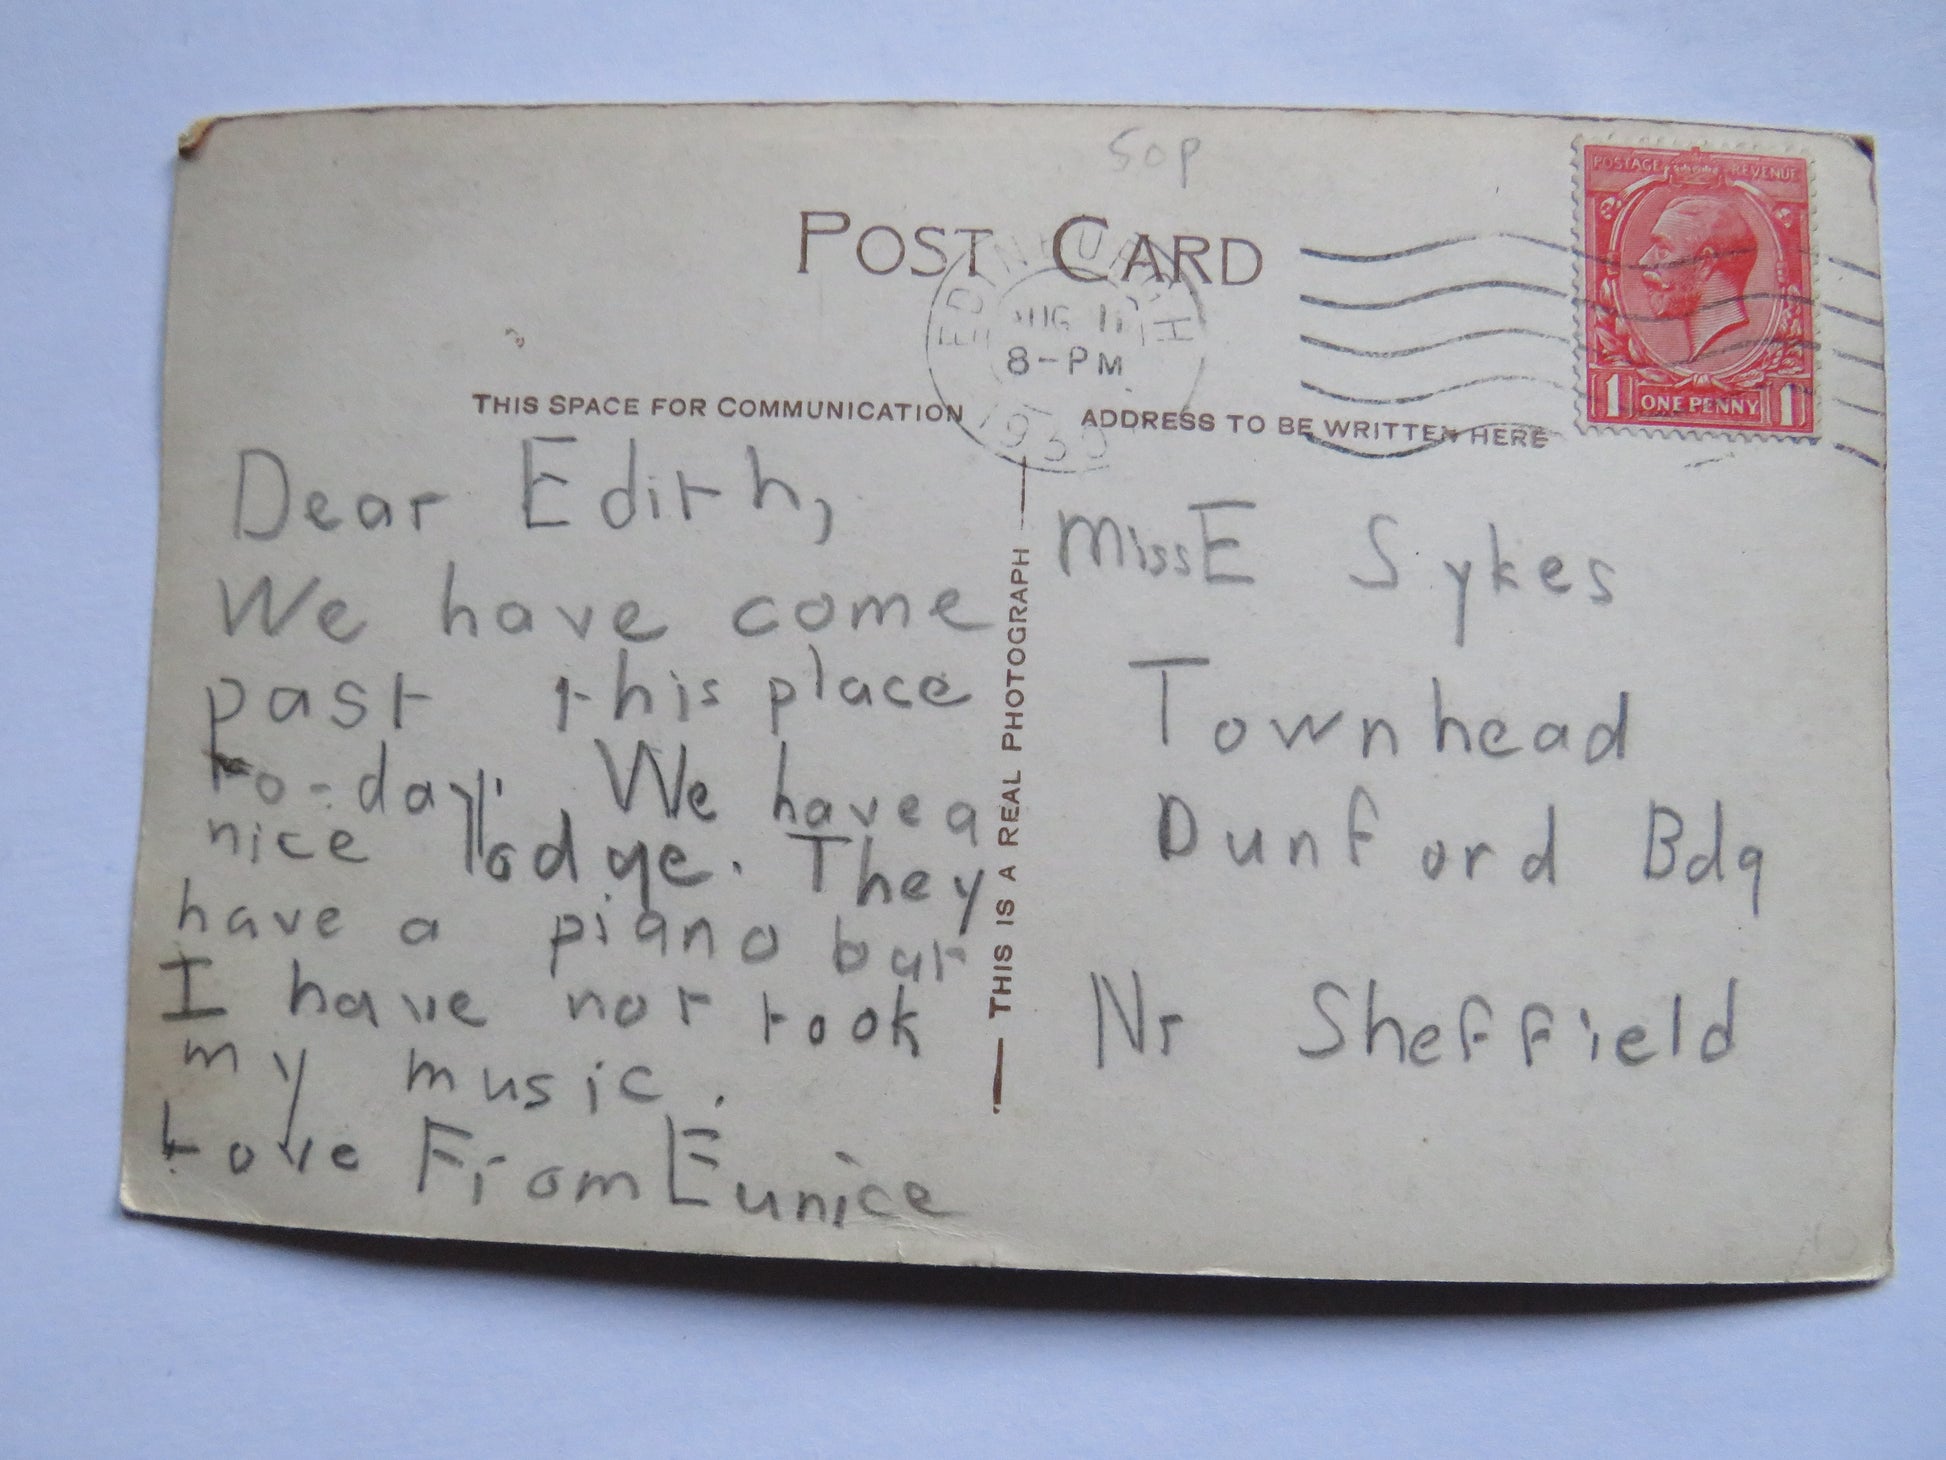 50p
POST CARD
EDINBURGH
AUG 11
8-PM
POSTAGE REVENUE
1 ONE PENNY 1
THIS SPACE FOR COMMUNICATION
ADDRESS TO BE WRITTEN HERE
Dear Edith,
We have come
past this place
to-day. We have a
nice lodge. They
have a piano bur
I have not took
my music.
Love From Eunice
THIS IS A REAL PHOTOGRAPH
Miss E Sykes
Townhead
Dunford Bdg
Nr Sheffield